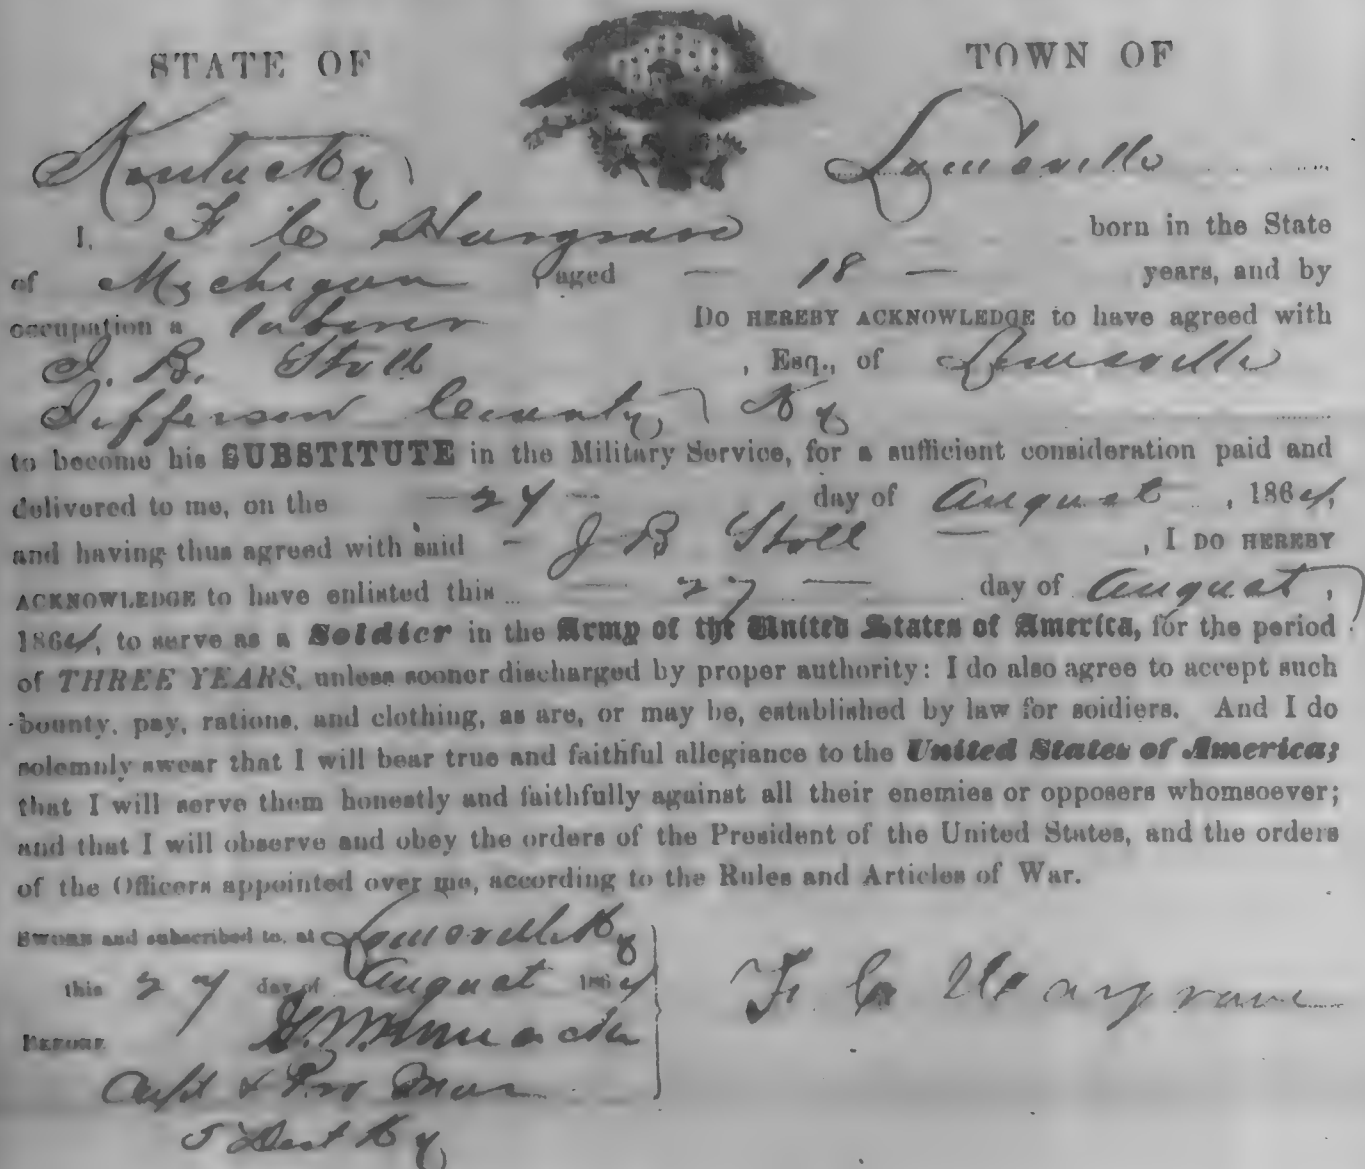 STATE OF
TOWN OF
Kentucky
Louisville
I, F C Hargrave born in the State
of Mychigan aged — 18 — years, and by
occupation a laborer Do HEREBY ACKNOWLEDGE to have agreed with
J. B. Stoll , Esq., of Louisville
Jefferson County, Ky
to become his SUBSTITUTE in the Military Service, for a sufficient consideration paid and
delivered to me, on the — 27 — day of August , 1864,
and having thus agreed with said - J B Stoll — , I DO HEREBY
ACKNOWLEDGE to have enlisted this — 27 — day of August ,
1864, to serve as a Soldier in the Army of the United States of America, for the period
of THREE YEARS, unless sooner discharged by proper authority: I do also agree to accept such
bounty, pay, rations, and clothing, as are, or may be, established by law for soidiers. And I do
solemnly swear that I will bear true and faithful allegiance to the United States of America;
that I will serve them honestly and faithfully against all their enemies or opposers whomsoever;
and that I will observe and obey the orders of the President of the United States, and the orders
of the Officers appointed over me, according to the Rules and Articles of War.
SWORN and subscribed to, at Louisville Ky
this 27 day of August 1864
F C Hargrave
BEFORE
Capt & Pro Mar
5 Dist Ky